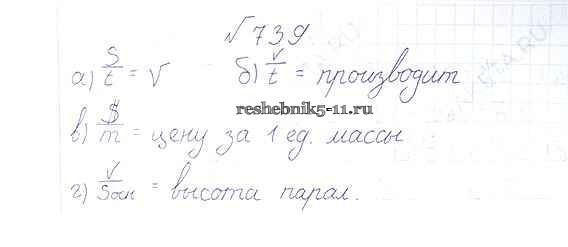 №739.
а) S/t = V б) V/t = производит
reshebnik5-11.ru
в) $/m = цену за 1 ед. массы
г) V/Sосн = высота парал.